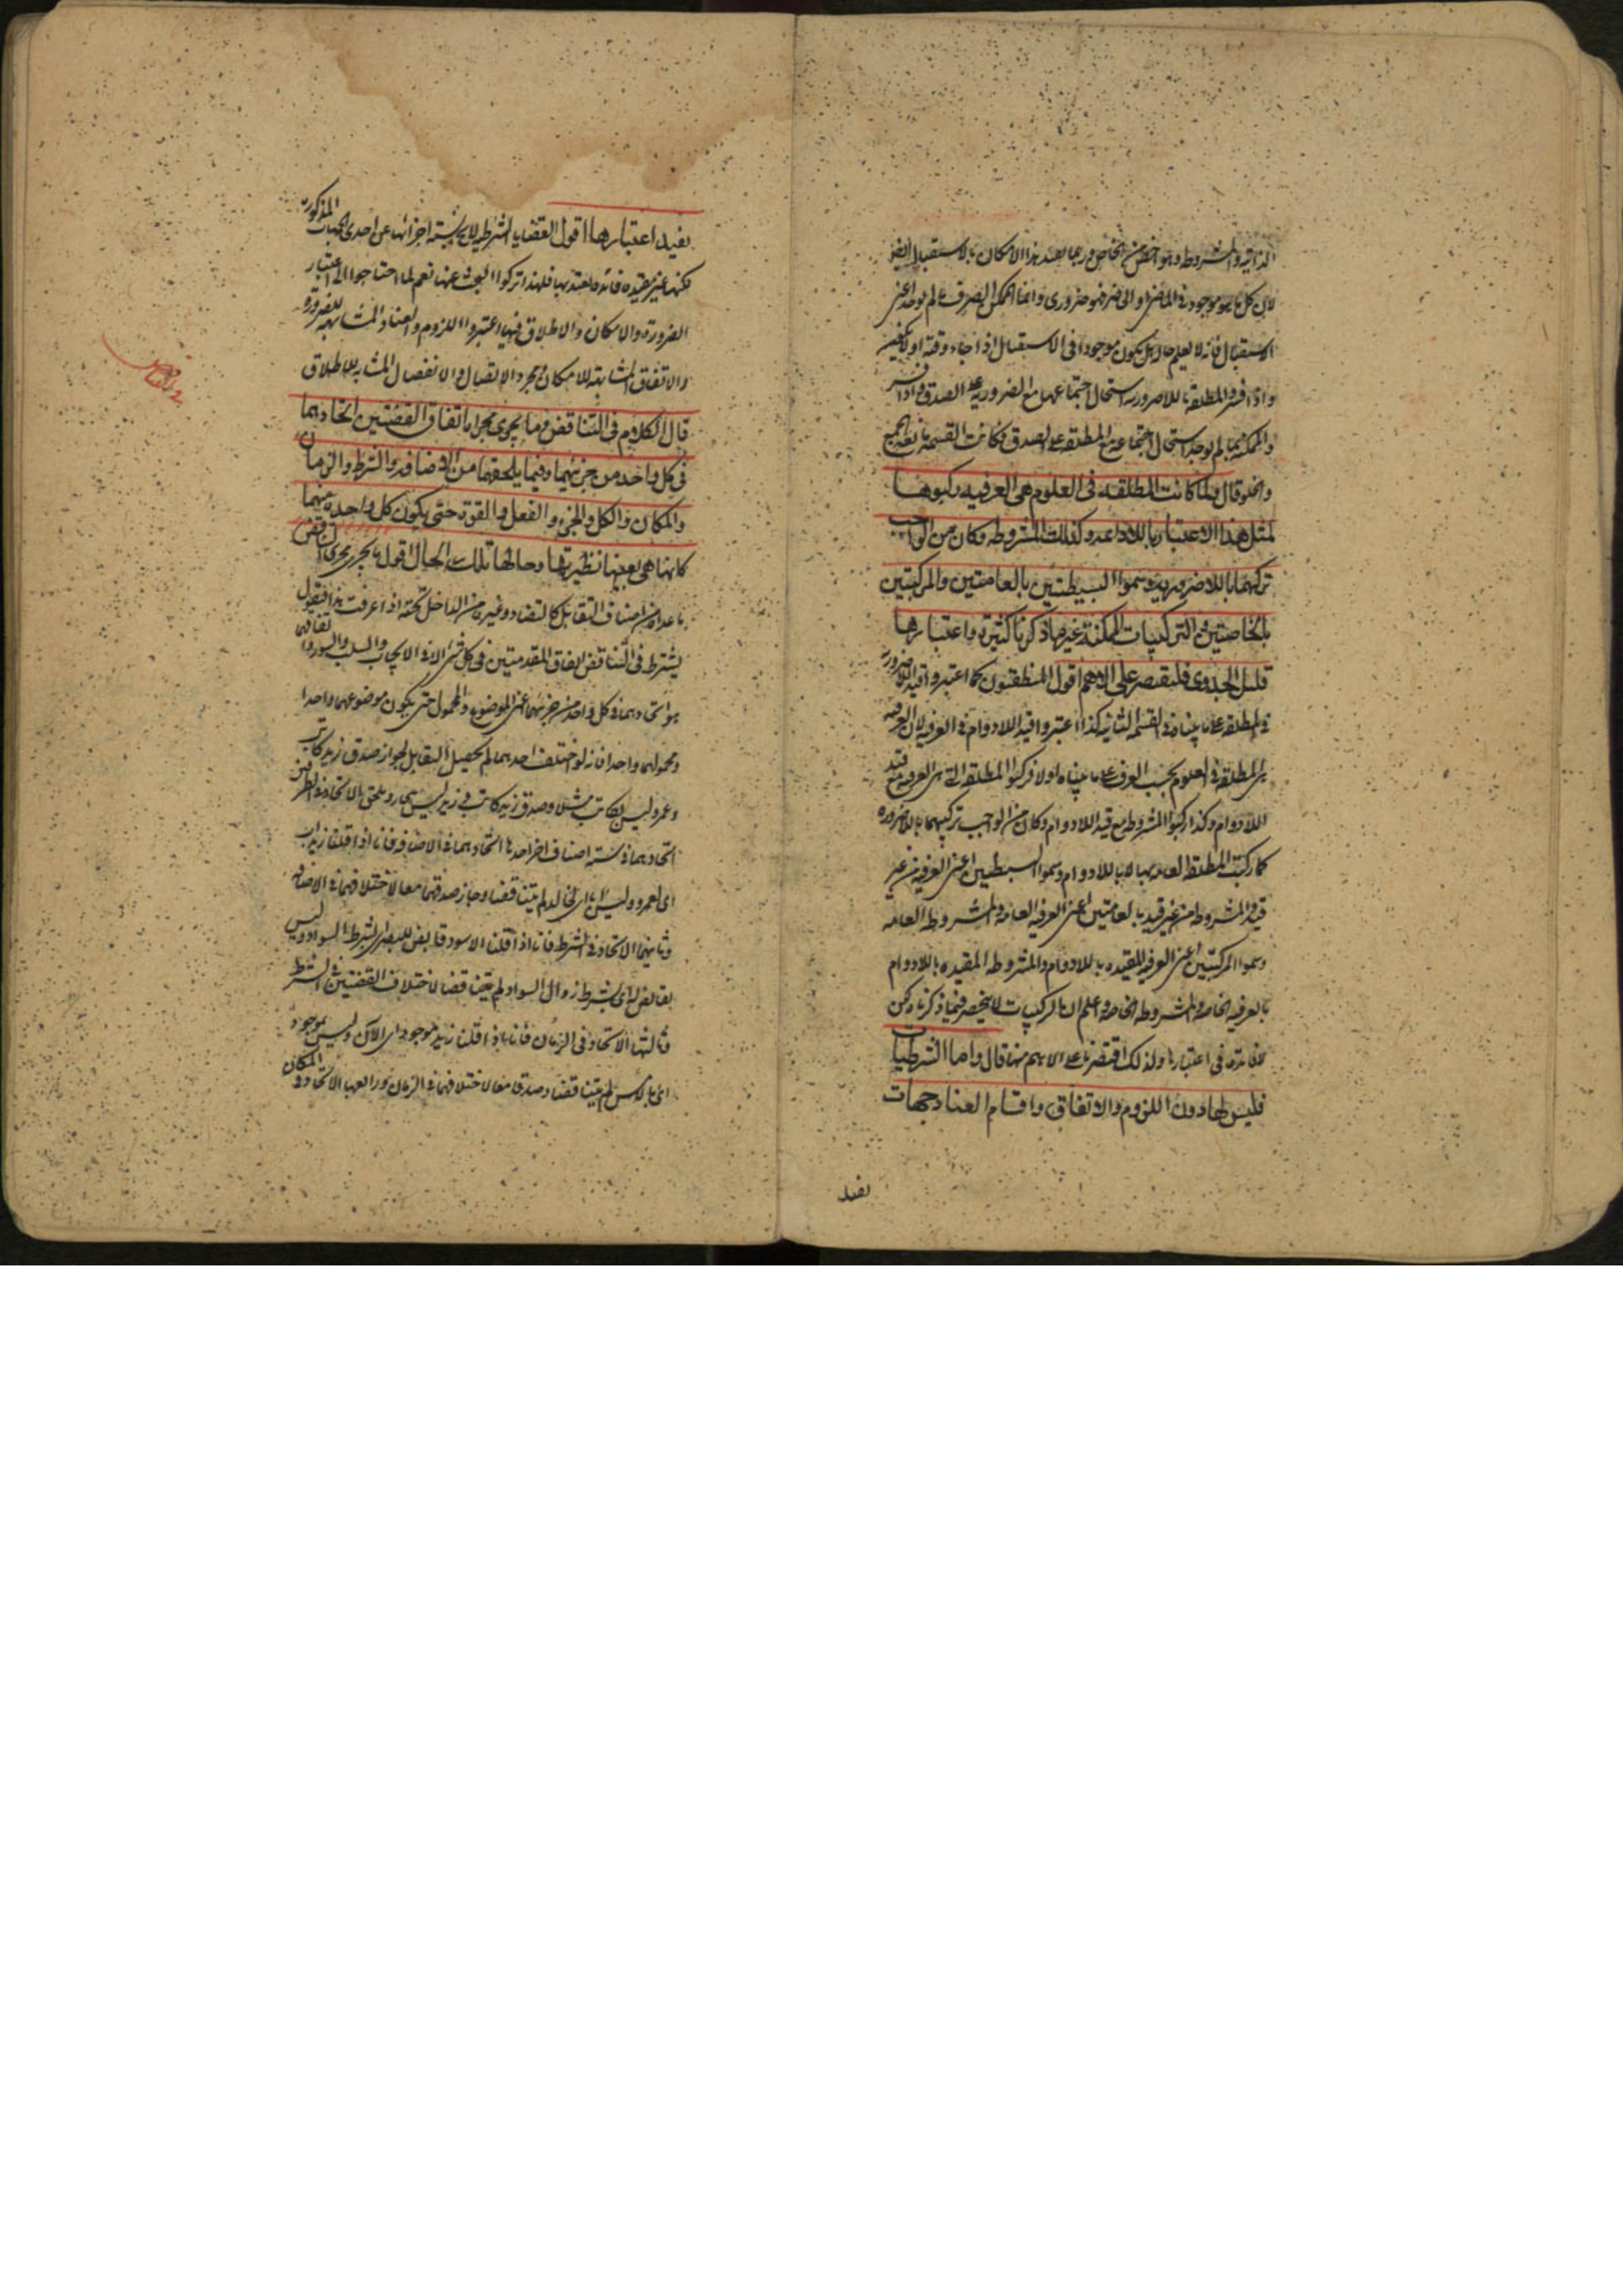 الذاتية والمشروط وهو اخص من الخاص وربما يعتبر هذا الامكان بالاستقبال ايضا
لان كل ما هو موجود في الماضي او الحاضر فهو ضروري وانما الممكن الصرف ما لم يوجد اعني
الاستقبال فانه لا يعلم حال هل يكون موجودا في الاستقبال اذا جاء وقته او لا يكون
واذا فسر المطلقة باللاضرورية استحال اجتماعهما مع الضرورية على الصدق واذا فسر
والممكنة بما لم يوجد استحال اجتماعه مع المطلقة على الصدق فكانت القسمة مانعة الجمع
والخلو قال ولما كانت المطلقة في العلوم هي العرفية ركبوها
لمثل هذا الاعتبار باللادائمة وكذلك المشروطة وكان من الواجب
تركيبهما باللاضرورية وسموا البسيطتين بالعامتين والمركبتين
بالخاصتين وفي التركيبات الممكنة غير ما ذكرنا كثيرة واعتبارها
قليل الجدوى فلنقتصر على الاهم اقول المنطقيون كما اعتبروا قيد اللاضرورة
في المطلقة على ما بيناه في القسمة الثانية كذا اعتبروا قيد اللادوام في العرفية لان العرفية
هي المطلقة في العلوم بحسب العرف على ما بيناه اولا فركبوا المطلقة التي هي العرفية مع قيد
اللادوام وكذا ركبوا المشروطة مع قيد اللادوام وكان من الواجب تركيبهما باللاضرورة
كما ركبت المطلقة العامة بها لا باللادوام وسموا البسيطتين اعني العرفية من غير
قيد والمشروطة من غير قيد بالعامتين اعني العرفية العامة والمشروطة العامة
وسموا المركبتين اعني العرفية المقيدة باللادوام والمشروطة المقيدة باللادوام
بالعرفية الخاصة والمشروطة الخاصة واعلم ان التركيبات لا ينحصر فيما ذكرناه لكن
لا فائدة في اعتبارها ولذلك اقتصرنا على الاهم منها قال واما الشرطيات
فليس لها دون اللزوم والاتفاق واقسام العناد جهات
يفيد
يفيد اعتبارها اقول القضايا الشرطية لا يخلو نسبة اجزائها عن احدى الجهات المذكورة
لكنها غير مفيدة فائدة يعتد بها فلهذا تركوا البحث عنها نعم لما احتاجوا الى اعتبار
الضرورة والامكان والاطلاق فيها اعتبروا اللزوم والعناد المشابهة للضرورة
والاتفاق المشابهة للامكان ومجرد الاتصال والانفصال المشابه للاطلاق
قال الكلام في التناقض وما يجري مجراه اتفاق القضيتين اتحادهما
في كل واحد من جزئيهما وفيما يلحقهما من الاضافة والشرط والزمان
والمكان والكل والجزء والفعل والقوة حتى يكون كل واحدة منهما
كانها هي بعينها نظيرتها وحالها تلك الحال اقول ما يجري مجرى التناقض
ما عداه من اصناف التقابل كالتضاد وغيره من الداخل تحته اذا عرفت هذا فنقول
يشترط في التناقض اتفاق المقدمتين في كل شيء الا في الايجاب والسلب والسور واتفاقهما
هو اتحادهما في كل واحد من جزئيهما اعني الموضوع والمحمول حتى يكون موضوعهما واحدا
ومحمولهما واحدا فانه لو اختلف احدهما لم يحصل التقابل لجواز صدق زيد كاتب
وعمرو ليس بكاتب مثلا وصدق زيد كاتب زيد ليس بنجار ويلحق بالاتحاد في الطرفين
اتحادهما في ستة اصناف اخر احدها اتحادهما في الاضافة فانا اذا قلنا زيد اب
اي لعمرو وليس باب اي لخالد لم يتناقضا وجاز صدقهما معا لاختلافهما في الاضافة
وثانيها الاتحاد في الشرط فانا اذا قلنا الاسود قابض للبصر اي بشرط السواد وليس
بقابض اي بشرط زوال السواد لم يتناقضا لاختلاف القضيتين في الشرط
وثالثها الاتحاد في الزمان فانا اذا قلنا زيد موجود اي الآن وليس بموجود
اي بالامس لم يتناقضا وصدقا معا لاختلافهما في الزمان ورابعها الاتحاد في المكان